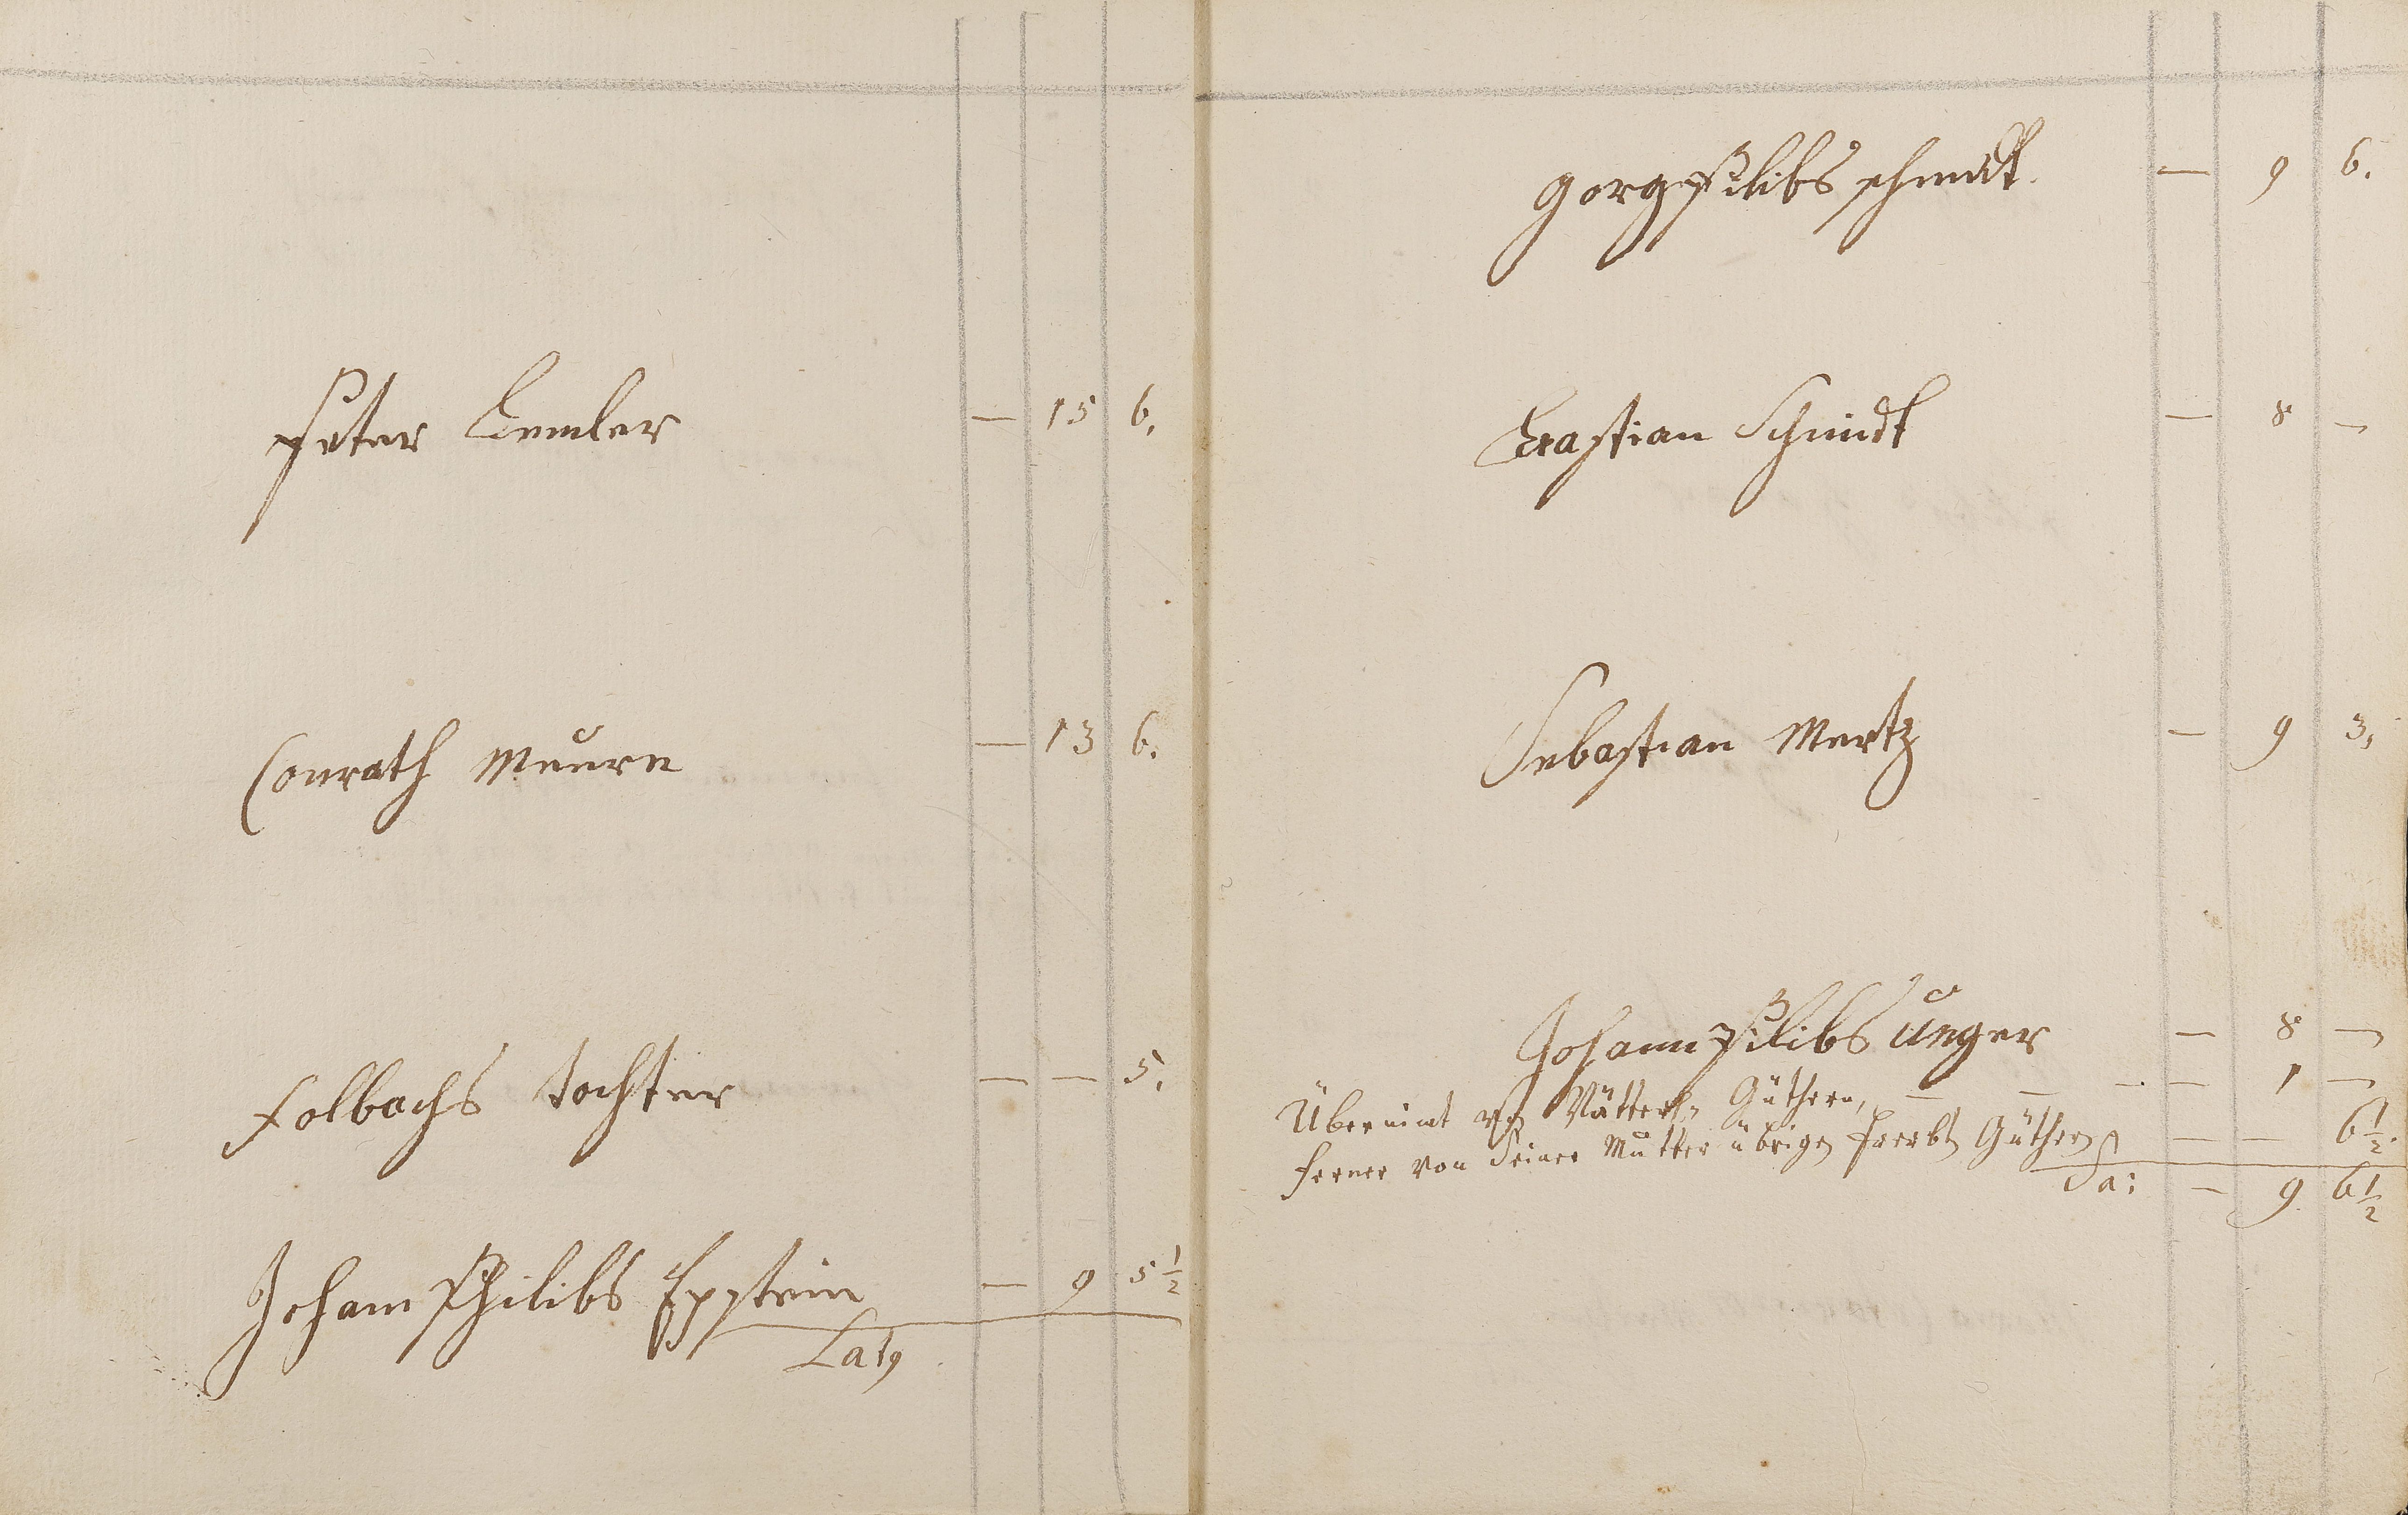 Peter Lemler — 15 6.
Conrath Meuren — 13 6.
Folbachs tochter — — 5.
Johann Philibs Eppstein — 9 5 1/2
Lat9
Gorg Filibs schmidt. — 9 6.
Bastian Schmidt — 8 —
Sebastian Mertz — 9 3.
Johann Filibs Unger — 8 —
Übernimt Vätterl. Güthern, — — — — 1 —
ferner von seiner Mutter übrigen Güthern — — 6 1/2.
Sa: — 9. 6 1/2